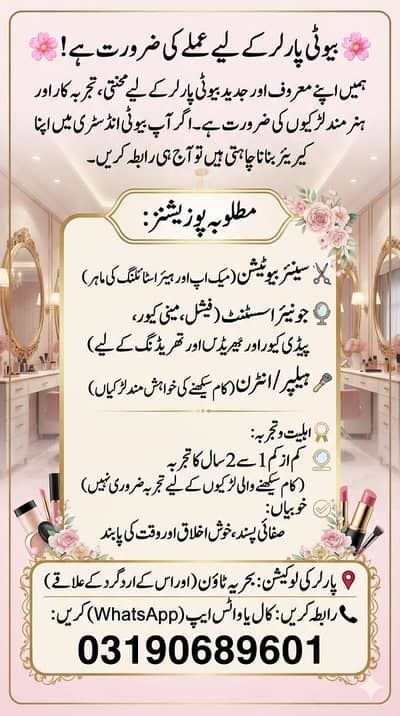 بیوٹی پارلر کے لیے عملے کی ضرورت ہے!
ہمیں اپنے معروف اور جدید بیوٹی پارلر کے لیے محنتی، تجربہ کار اور
ہنر مند لڑکیوں کی ضرورت ہے۔ اگر آپ بیوٹی انڈسٹری میں اپنا
کیریئر بنانا چاہتی ہیں تو آج ہی رابطہ کریں۔
مطلوبہ پوزیشنز:
سینئر بیوٹیشن (میک اپ اور ہیئر اسٹائلنگ کی ماہر)
جونیئر اسسٹنٹ (فیشل، مینی کیور،
پیڈی کیور اور تھریڈنگ کے لیے)
ہیلپر/انٹرن (کام سیکھنے کی خواہش مند لڑکیاں)
اہلیت و تجربہ:
کم از کم 1 سے 2 سال کا تجربہ
(کام سیکھنے والی لڑکیوں کے لیے تجربہ ضروری نہیں)
خوبیاں:
صفائی پسند، خوش اخلاق اور وقت کی پابند
پارلر کی لوکیشن: بحریہ ٹاؤن (اور اس کے اردگرد کے علاقے)
رابطہ کریں: کال یا واٹس ایپ (WhatsApp) کریں:
03190689601